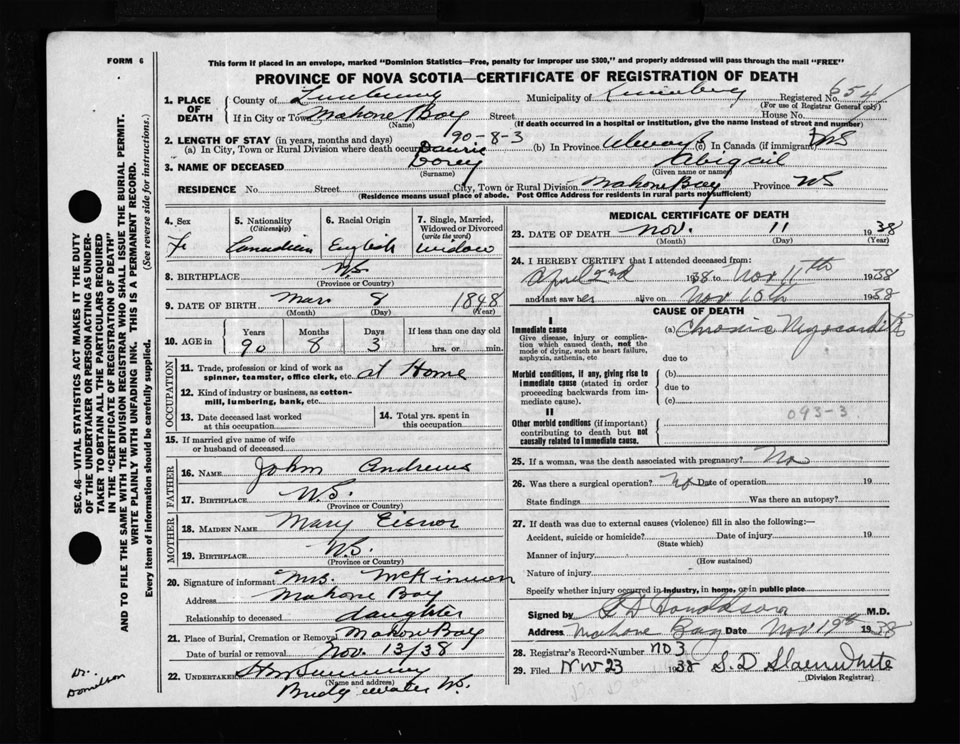 FORM 6
This form if placed in an envelope, marked "Dominion Statistics—Free, penalty for improper use $300," and properly addressed will pass through the mail "FREE"
PROVINCE OF NOVA SCOTIA—CERTIFICATE OF REGISTRATION OF DEATH
1. PLACE OF DEATH County of Lunenburg Municipality of Lunenburg Registered No. 654
(For use of Registrar General only)
If in City or Town Mahone Bay Street House No.
(Name) (If death occurred in a hospital or institution, give the name instead of street and number)
2. LENGTH OF STAY (in years, months and days) 90-8-3
(a) In City, Town or Rural Division where death occurred (b) In Province Always (c) In Canada (if immigrant) NS
3. NAME OF DECEASED Corey Abigail
(Surname) (Given name or names)
RESIDENCE No. Street City, Town or Rural Division Mahone Bay Province NS
(Residence means usual place of abode. Post Office Address for residents in rural parts not sufficient)
4. Sex Fe
5. Nationality (Citizenship) Canadian
6. Racial Origin English
7. Single, Married, Widowed or Divorced (write the word) Widow
8. BIRTHPLACE NS
(Province or Country)
9. DATE OF BIRTH Mar 8 1848
(Year)
10. AGE in Years Months Days If less than one day old
90 8 3 hrs. or min.
OCCUPATION
11. Trade, profession or kind of work as spinner, teamster, office clerk, etc. at Home
12. Kind of industry or business, as cotton-mill, lumbering, bank, etc.
13. Date deceased last worked at this occupation
14. Total yrs. spent in this occupation
15. If married give name of wife or husband of deceased
FATHER
16. NAME John Andrews
17. BIRTHPLACE N.S.
(Province or Country)
MOTHER
18. MAIDEN NAME Mary Eisnor
19. BIRTHPLACE N.S.
(Province or Country)
20. Signature of informant Mrs. McKinnon
Address Mahone Bay
Relationship to deceased daughter
21. Place of Burial, Cremation or Removal Mahone Bay
Date of burial or removal Nov. 13/38
22. UNDERTAKER
(Name and address)
Bridgewater NS.
MEDICAL CERTIFICATE OF DEATH
23. DATE OF DEATH Nov. 11 1938
(Month) (Day) (Year)
24. I HEREBY CERTIFY that I attended deceased from:
April 2nd 1938 to Nov 11th 1938
and last saw her alive on Nov 10th 1938
CAUSE OF DEATH
I
Immediate cause (a) Chronic Myocarditis
Give disease, injury or complication which caused death, not the mode of dying, such as heart failure, asphyxia, asthenia, etc
due to
Morbid conditions, if any, giving rise to immediate cause (stated in order proceeding backwards from immediate cause).
(b)
due to
(c)
II
Other morbid conditions (if important) contributing to death but not causally related to immediate cause.
093-3
25. If a woman, was the death associated with pregnancy? No
26. Was there a surgical operation? No Date of operation 19
State findings Was there an autopsy?
27. If death was due to external causes (violence) fill in also the following:—
Accident, suicide or homicide? Date of injury 19
(State which)
Manner of injury
(How sustained)
Nature of injury
Specify whether injury occurred in Industry, in home, or in public place
Signed by Donaldson M.D.
Address Mahone Bay Date Nov 19th 1938
28. Registrar's Record-Number No 3
29. Filed Nov 23 1938 S. D Slaenwhite
(Division Registrar)
SEC. 46—VITAL STATISTICS ACT MAKES IT THE DUTY OF THE UNDERTAKER OR PERSON ACTING AS UNDERTAKER TO OBTAIN ALL THE PARTICULARS REQUIRED IN THE "CERTIFICATE OF REGISTRATION OF DEATH" AND TO FILE THE SAME WITH THE DIVISION REGISTRAR WHO SHALL ISSUE THE BURIAL PERMIT.
WRITE PLAINLY WITH UNFADING INK. THIS IS A PERMANENT RECORD.
Every item of information should be carefully supplied. (See reverse side for instructions.)
Dr. Donaldson